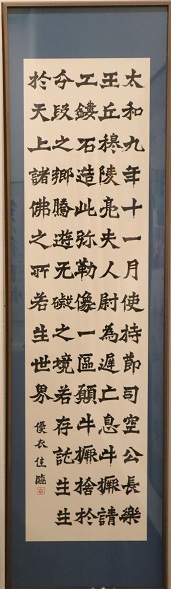 太和九年十一月使持節司空公長樂
王丘穆陵亮夫人尉為遲亡息牛橛請
工鏤石造此弥勒像一區願牛橛捨於
分段之鄉騰遊无礙之境若存託生生
於天上諸佛之所若生世界 優衣佳臨